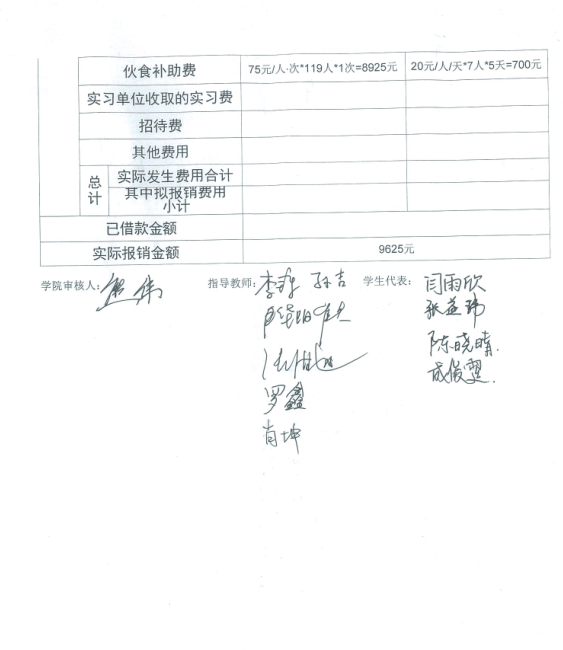 伙食补助费 75元/人·次*119人*1次=8925元 20元/人/天*7人*5天=700元
实习单位收取的实习费
招待费
其他费用
总计 实际发生费用合计
其中拟报销费用小计
已借款金额
实际报销金额 9625元
学院审核人: 熊伟 指导教师: 孙吉 学生代表: 闫雨欣
张益玮
陈晓晴.
成俊雯.
罗鑫
肖坤